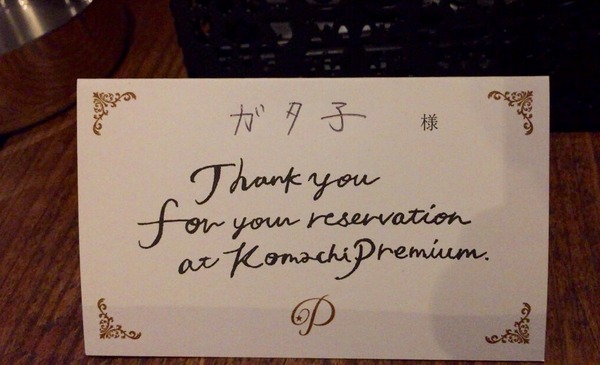 ガタ子 様
Thank you
for your reservation
at Komachi Premium.
P